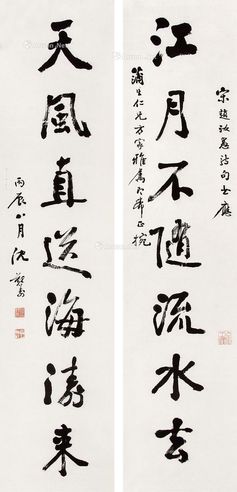 宋趙汝愚詩句士應
江月不隨流水去
蒲生仁兄方家雅屬即希正捥
天風直送海濤來
丙辰八月沈